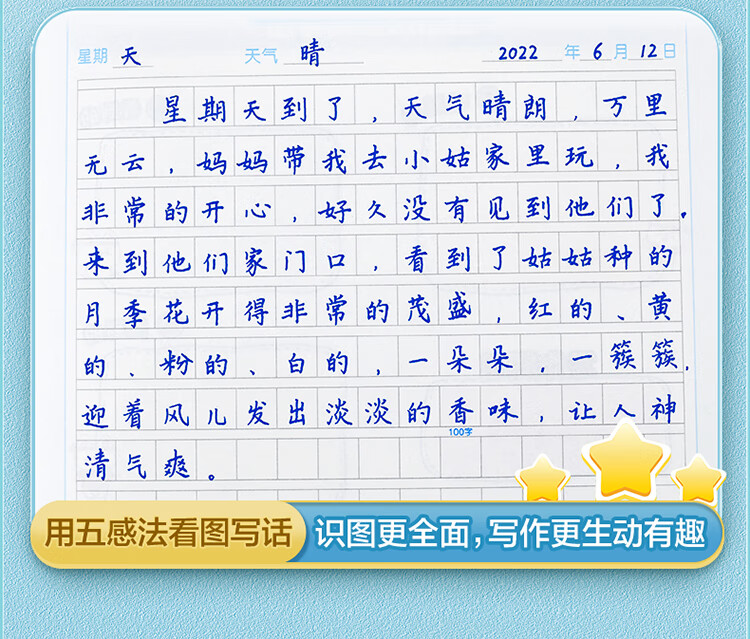 星期 天 天气 晴 2022 年 6 月 12 日
星期天到了，天气晴朗，万里
无云，妈妈带我去小姑家里玩，我
非常的开心，好久没有见到他们了。
来到他们家门口，看到了姑姑种的
月季花开得非常的茂盛，红的、黄
的、粉的、白的，一朵朵，一簇簇，
迎着风儿发出淡淡的香味，让人神
100字
清气爽。
用五感法看图写话 识图更全面，写作更生动有趣